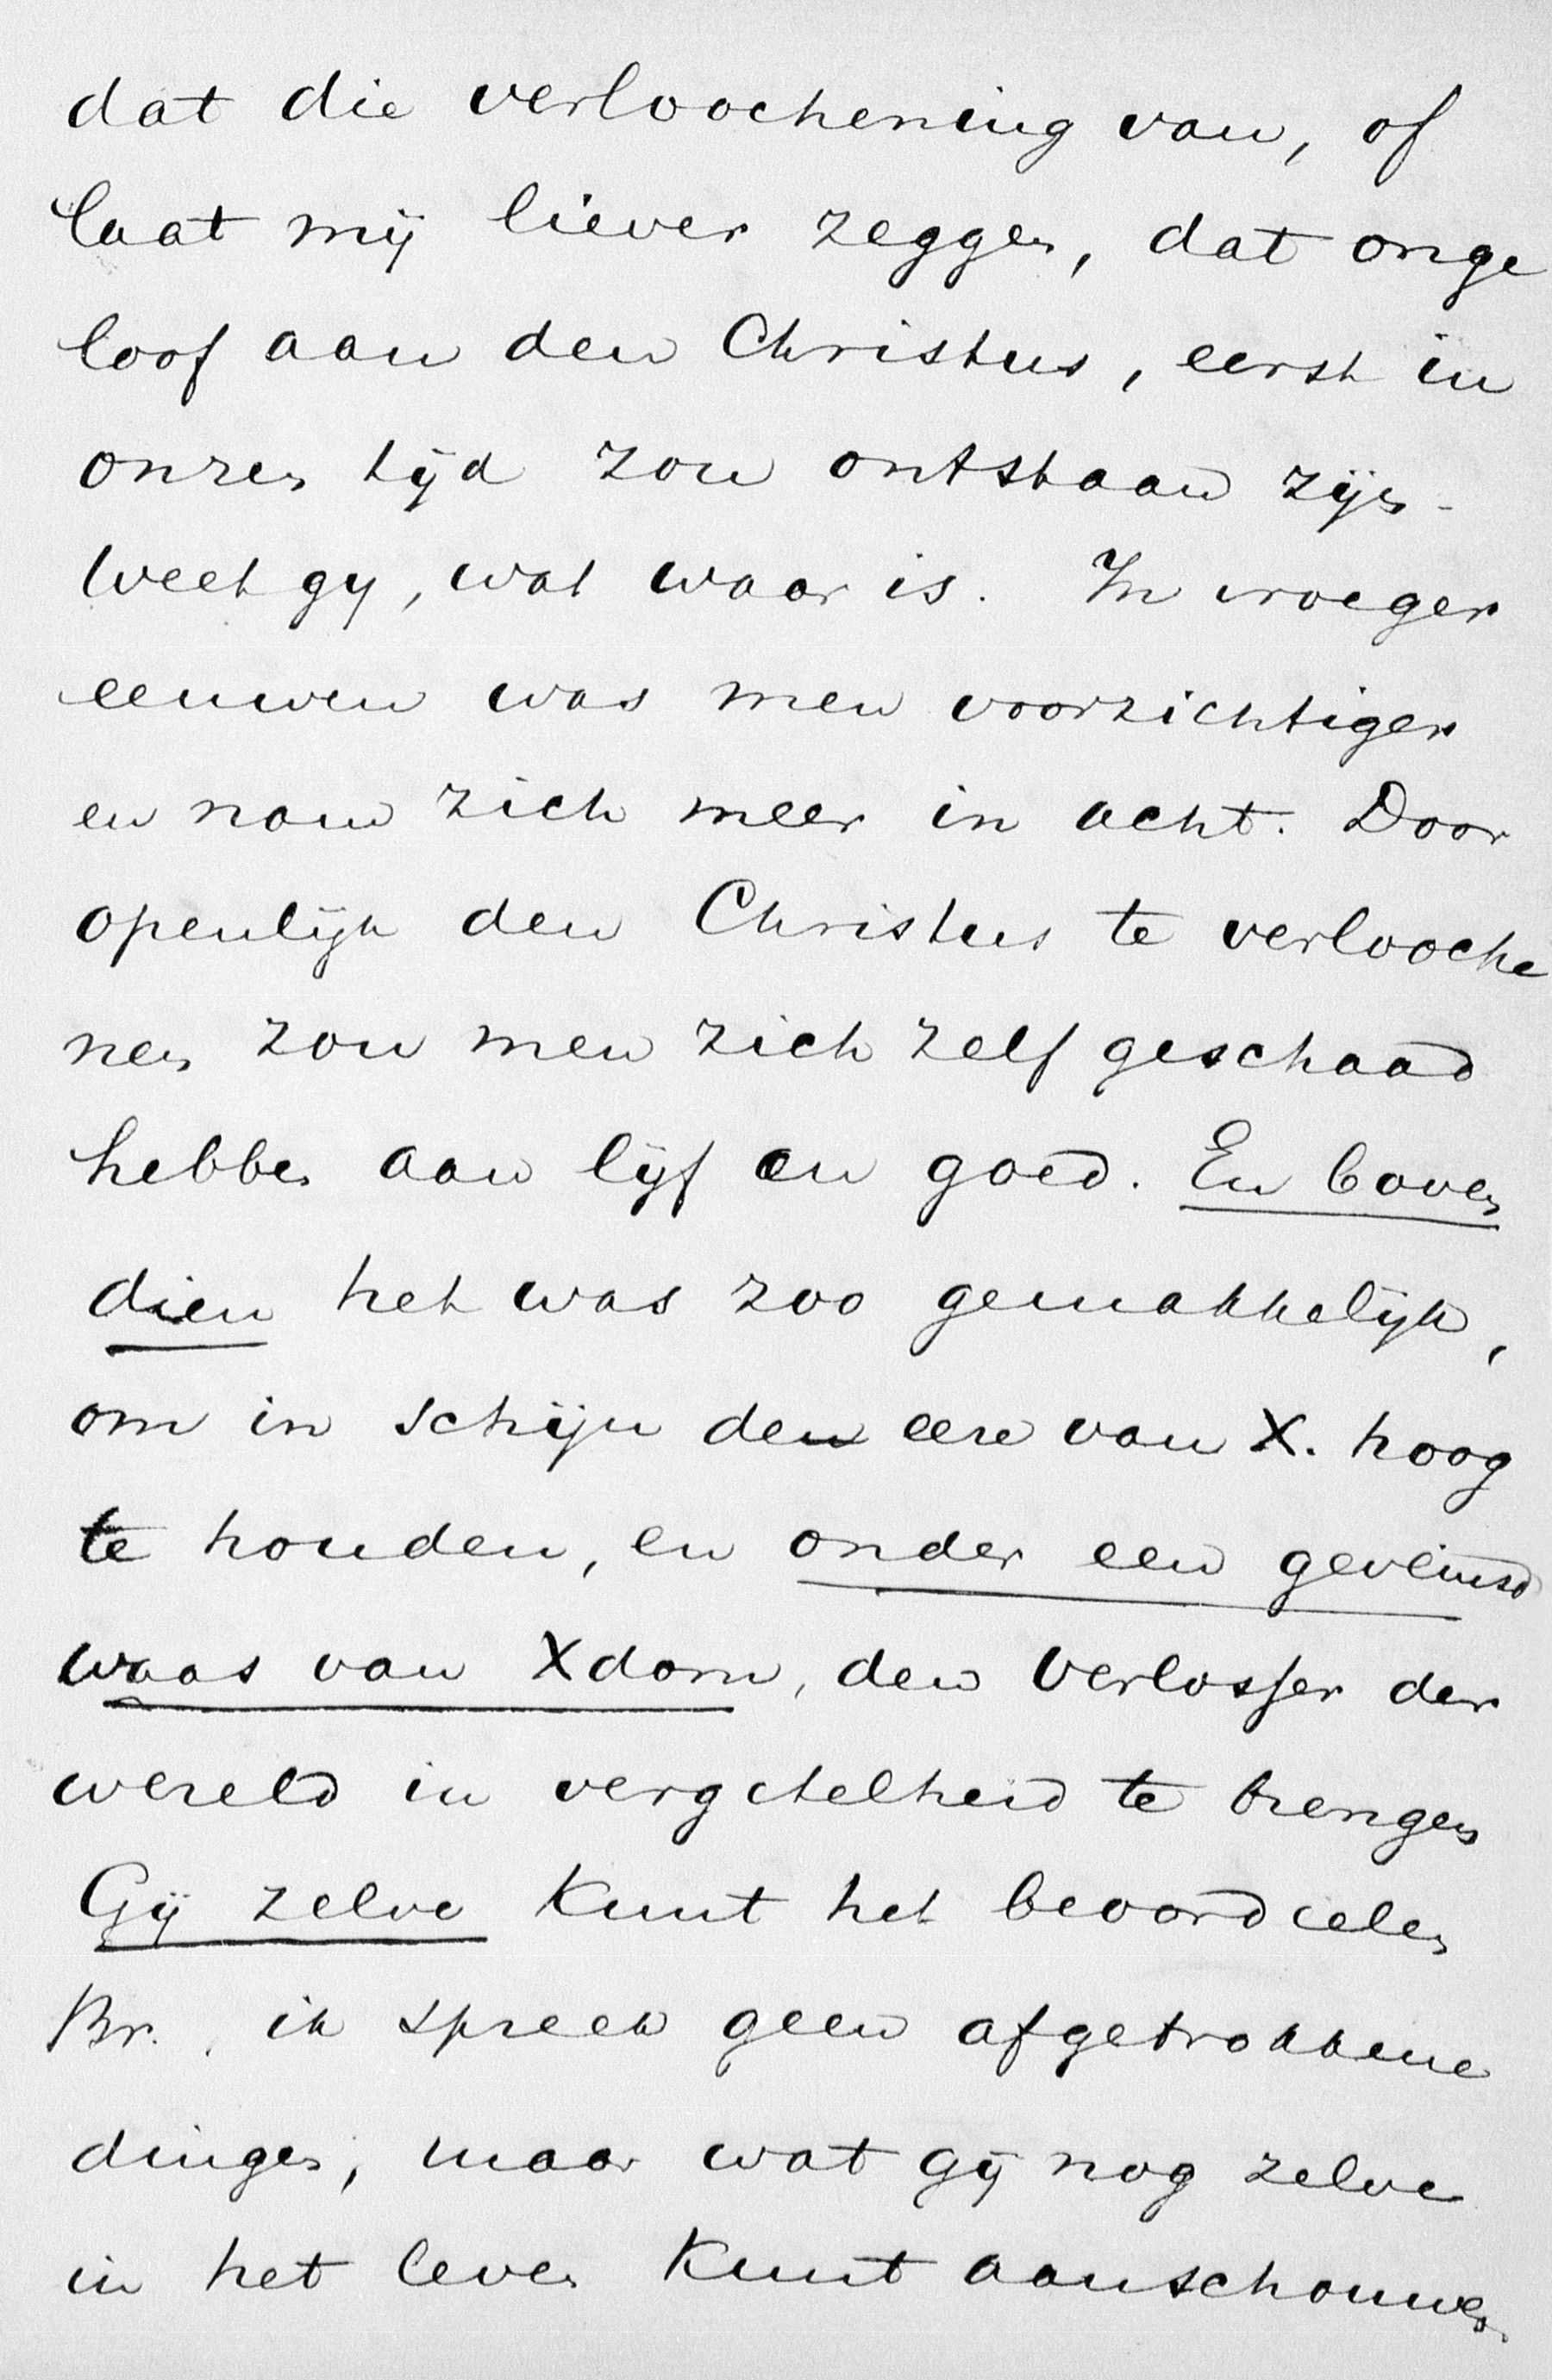 dat die verloochening van, of
laat mij liever zeggen, dat onge
loof aan den Christus, eerst in
onzen tijd zou ontstaan zijn -
weet gy, wat waar is. In vroeger
eeuwen was men voorzichtiger
en nam zich meer in acht. Door
openlijk den Christus te verlooche
nen zou men zich zelf geschaad
hebben aan lijf en goed. En boven
dien het was zoo gemakkelijk,
om in schijn den eere van X. hoog
te houden, en onder een geveinsd
waas van Xdom, den Verlosser der
wereld in vergetelheid te brengen
Gij zelve kunt het beoordeelen
Br., ik spreek geen afgetrokkene
dingen, maar wat gij nog zelve
in het leven kunt aanschouwen